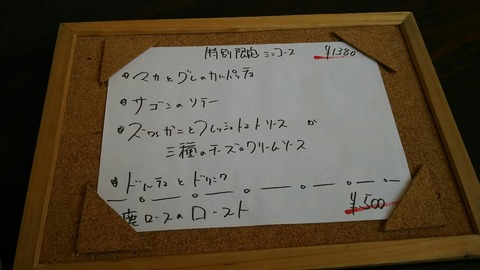 特別限定ミニコース ¥1380
マカとグレのカルパッチョ
サゴシのソテー
ズワイガニとフレッシュトマトソース か
三種のチーズのクリームソース
ドルチェとドリンク
鹿ロースのロースト ¥500